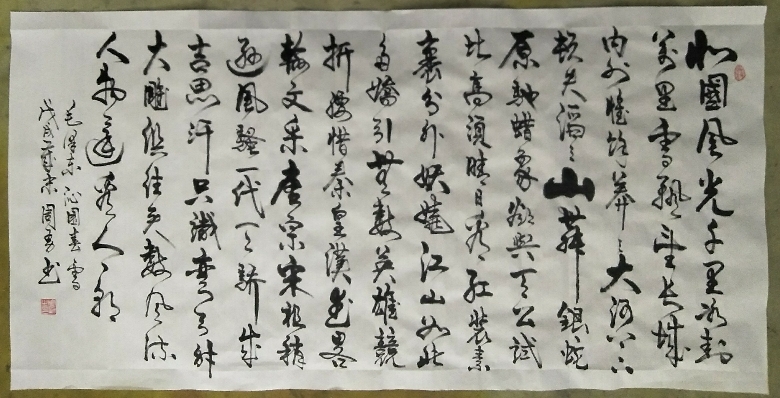 北國風光千里冰封
万里雪飘望长城
内外惟馀莽々大河上下
頓失滔々山舞銀蛇
原馳蜡象欲與天公試
比高須晴日看红装素
裹分外妖娆江山如此
多嬌引無數英雄競
折腰惜秦皇漢武略
輸文采唐宗宋祖稍
遜風騷一代天骄成
吉思汗只識彎弓射
大雕俱往矣數風流
人物還看今朝
毛泽东沁园春雪
戊戌 周 书